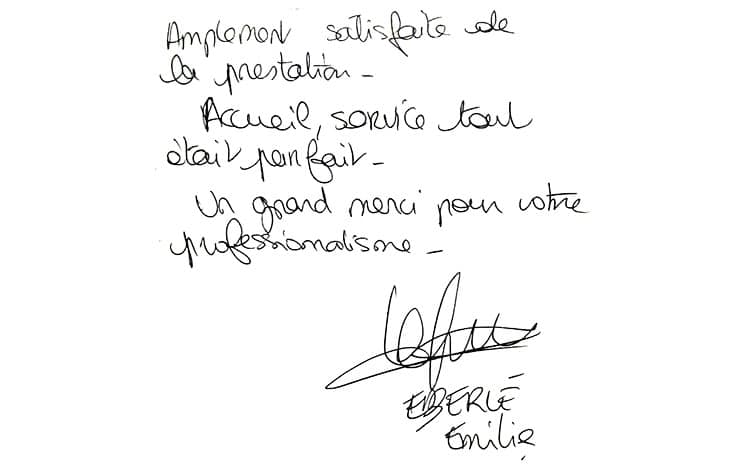 Amplement satisfaite de
la prestation -
Accueil, service tout
était parfait -
Un grand merci pour votre
professionnalisme -
EBERLÉ
Emilie